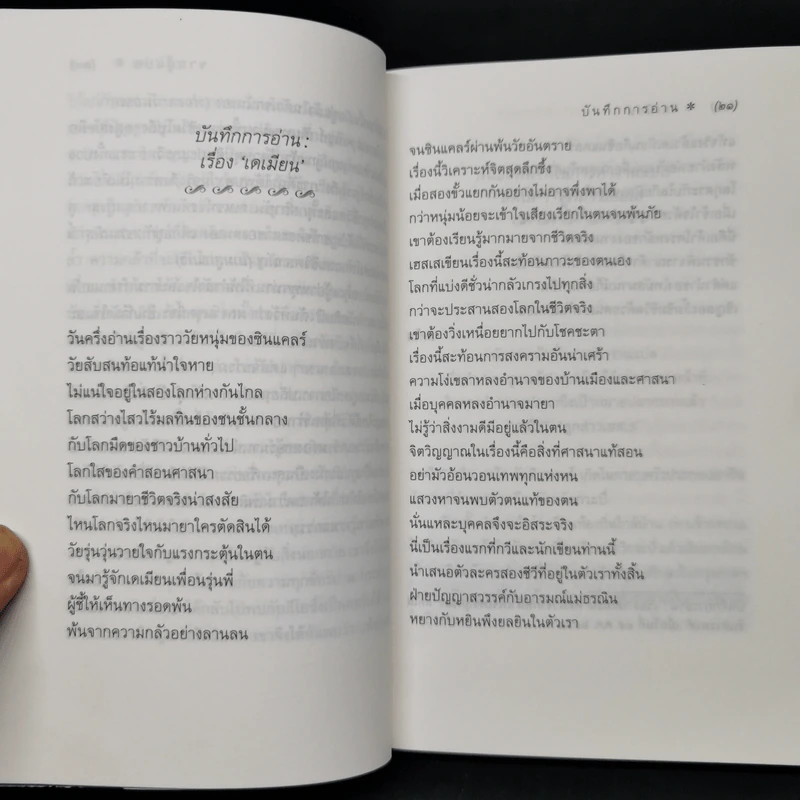 บันทึกการอ่าน :
เรื่อง ‘เดเมียน’
วันครึ่งอ่านเรื่องราววัยหนุ่มของซินแคลร์
วัยสับสนท้อแท้น่าใจหาย
ไม่แน่ใจอยู่ในสองโลกห่างกันไกล
โลกสว่างไสวไร้มลทินของชนชั้นกลาง
กับโลกมืดของชาวบ้านทั่วไป
โลกใสของคำสอนศาสนา
กับโลกมายาชีวิตจริงน่าสงสัย
ไหนโลกจริงไหนมายาใครตัดสินได้
วัยรุ่นวุ่นวายใจกับแรงกระตุ้นในตน
จนมารู้จักเดเมียนเพื่อนรุ่นพี่
ผู้ชี้ให้เห็นทางรอดพ้น
พ้นจากความกลัวอย่างลานลน
บันทึกการอ่าน * (๒๑)
จนซินแคลร์ผ่านพ้นวัยอันตราย
เรื่องนี้วิเคราะห์จิตสุดลึกซึ้ง
เมื่อสองขั้วแยกกันอย่างไม่อาจพึ่งพาได้
กว่าหนุ่มน้อยจะเข้าใจเสียงเรียกในตนจนพ้นภัย
เขาต้องเรียนรู้มากมายจากชีวิตจริง
เฮสเสเขียนเรื่องนี้สะท้อนภาวะของตนเอง
โลกที่แบ่งดีชั่วน่ากลัวเกรงไปทุกสิ่ง
กว่าจะประสานสองโลกในชีวิตจริง
เขาต้องวิ่งเหนื่อยยากไปกับโชคชะตา
เรื่องนี้สะท้อนการสงครามอันน่าเศร้า
ความโง่เขลาหลงอำนาจของบ้านเมืองและศาสนา
เมื่อบุคคลหลงอำนาจมายา
ไม่รู้ว่าสิ่งงามดีมีอยู่แล้วในตน
จิตวิญญาณในเรื่องนี้คือสิ่งที่ศาสนาแท้สอน
อย่ามัวอ้อนวอนเทพทุกแห่งหน
แสวงหาจนพบตัวตนแท้ของตน
นั่นแหละบุคคลจึงจะอิสระจริง
นี่เป็นเรื่องแรกที่กวีและนักเขียนท่านนี้
นำเสนอตัวละครสองชีวีที่อยู่ในตัวเราทั้งสิ้น
ฝ่ายปัญญาสวรรค์กับอารมณ์แม่ธรณิน
หยางกับหยินพึงยลยินในตัวเรา